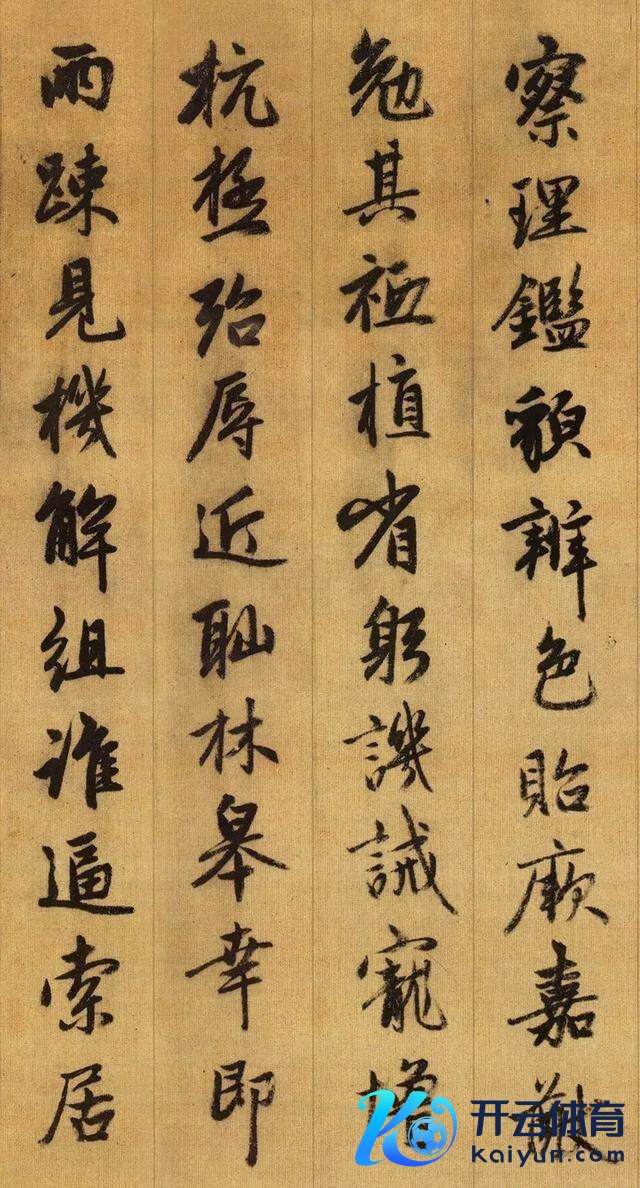 察理鑑䫉辨色貽厥嘉猷
勉其祗植省躬譏誡寵增
杭極殆辱近耻林皋幸即
兩踈見機解組誰逼索居
开云体育
kaiyun.com